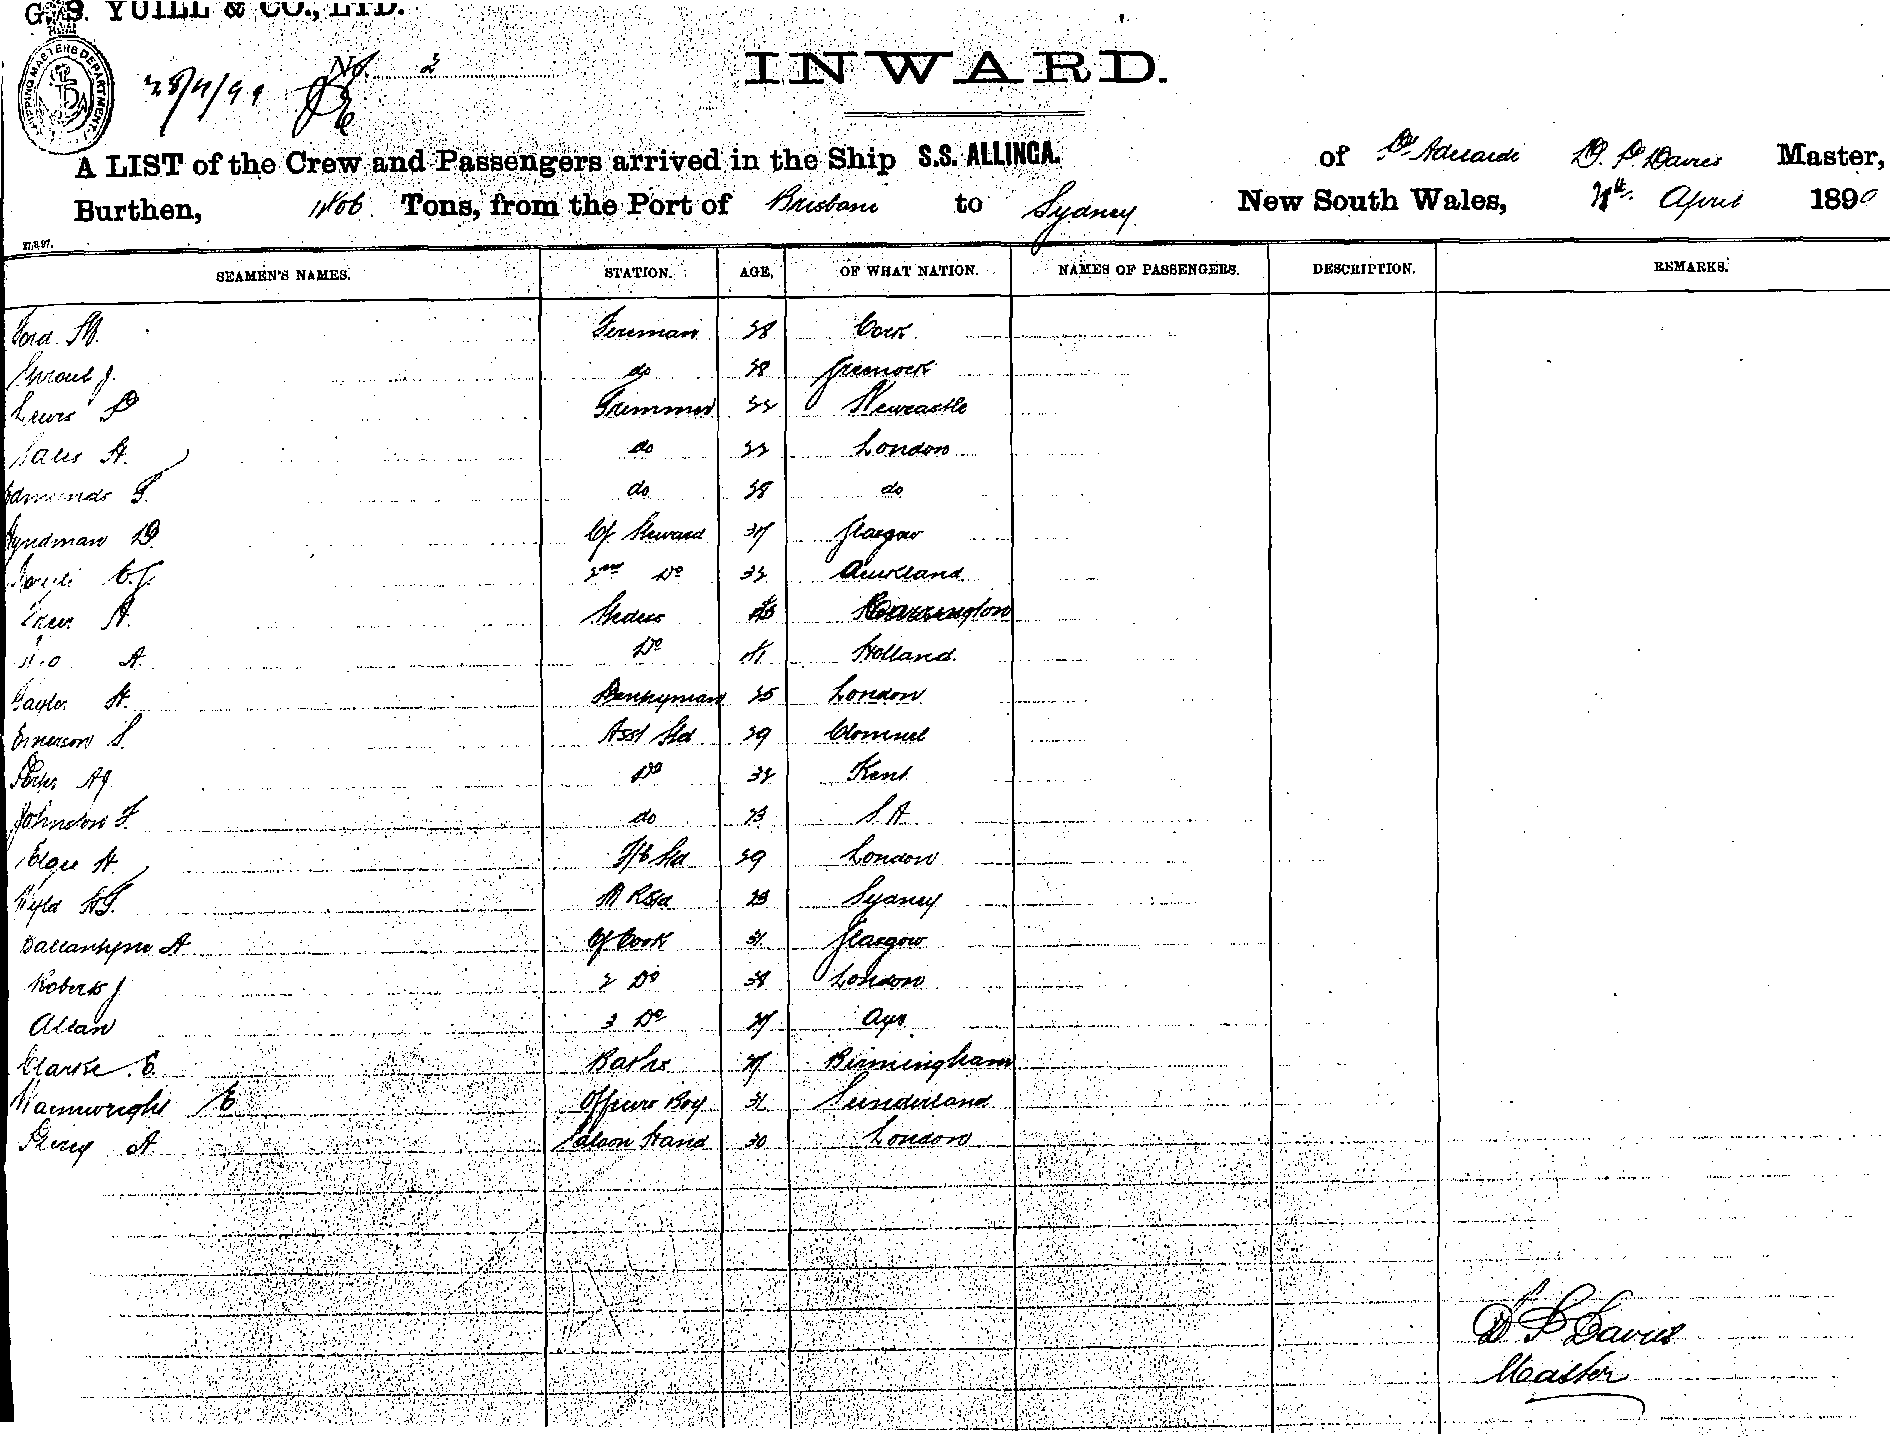 G. S. YUILL & CO., LTD.
SHIPPING MASTERS DEPARTMENT.
28/4/99 No. 2
INWARD.
A LIST of the Crew and Passengers arrived in the Ship S.S. ALLINGA. of Pt Adelaide D. P. Davies Master,
Burthen, Tons, from the Port of Brisbane to Sydney New South Wales, April 189
27.8.97.
SEAMEN'S NAMES. STATION. AGE, OF WHAT NATION. NAMES OF PASSENGERS. DESCRIPTION. REMARKS.
Ford Fireman 28 Cork
Sproul J. do 28 Greenock
Lewis D Trimmer 22 Newcastle
A. do 22 London
Edmunds F. do 28 do
Hyndman D. Cf Steward Glasgow
2nd Do 32 Auckland
A. Stdess Warrington
A. Do Holland.
Taylor H. Pantryman 25 London
Emerson S. Asst Std 29 Clonmel
Do 32 Kent
Johnston F. do 23 S.A
Elgee H. F/C Std 29 London
Wyld H.G. 23 Sydney
Ballantyne A Cf Cook 31 Glasgow
Roberts J 2 Do 38 London
Allan 3 Do Ayr
Clarke E. Baker Birmingham
Wainwright E Officers Boy 31 Sunderland
A. Saloon Hand 30 London
D P Davies
Master